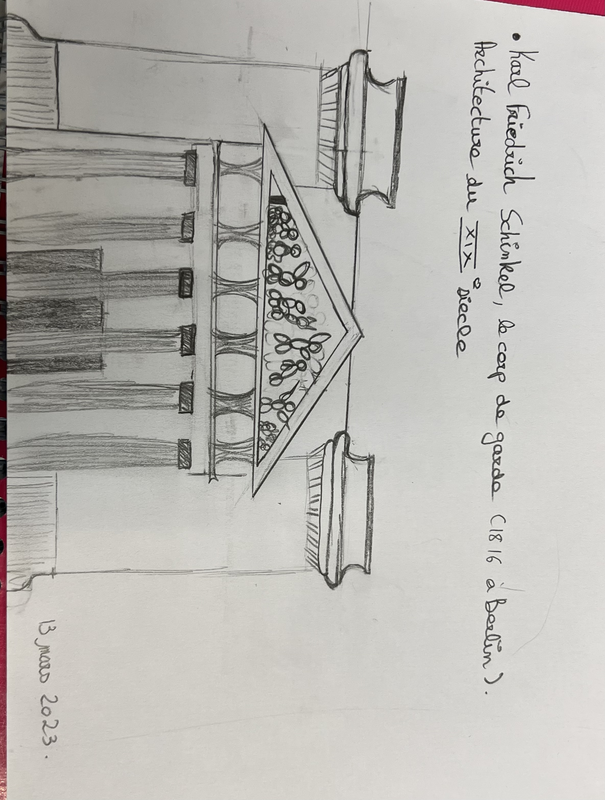 • Karl Friedrich Schinkel, le corp de garde (1816 à Berlin).
Architecture du XIX° siècle
13, mars 2023.